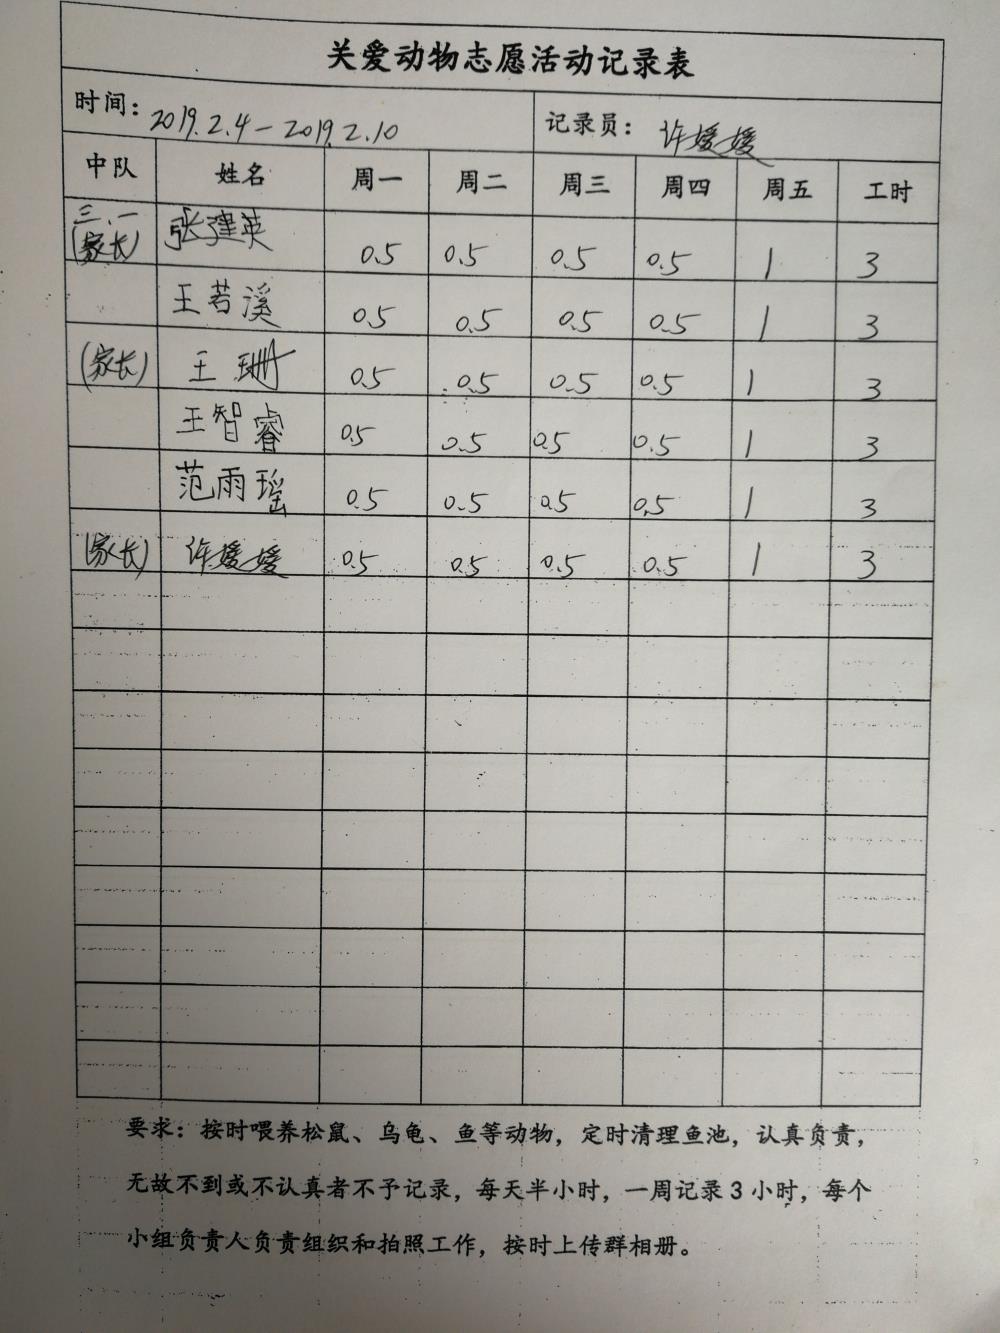 关爱动物志愿活动记录表
时间：2019.2.4-2019.2.10 记录员：许媛媛
中队 姓名 周一 周二 周三 周四 周五 工时
三、一(家长) 张建英 0.5 0.5 0.5 0.5 1 3
王若溪 0.5 0.5 0.5 0.5 1 3
(家长) 王珊 0.5 0.5 0.5 0.5 1 3
王智睿 0.5 0.5 0.5 0.5 1 3
范雨瑶 0.5 0.5 0.5 0.5 1 3
(家长) 许媛媛 0.5 0.5 0.5 0.5 1 3
要求：按时喂养松鼠、乌龟、鱼等动物，定时清理鱼池，认真负责，
无故不到或不认真者不予记录，每天半小时，一周记录3小时，每个
小组负责人负责组织和拍照工作，按时上传群相册。